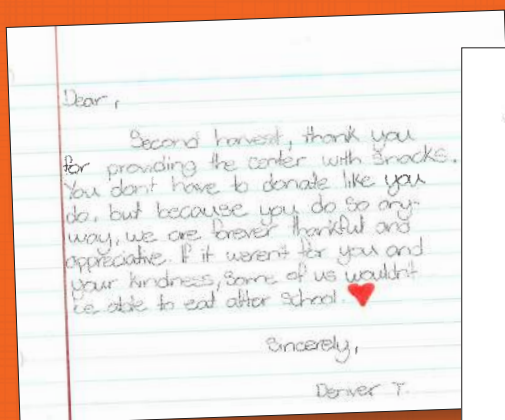 Dear,
Second harvest, thank you
for providing the center with snacks.
You don't have to donate like you
do, but because you do so any-
way, we are forever thankful and
appreciative. If it weren't for you and
your kindness, some of us wouldn't
be able to eat after school.
Sincerely,
Denver T.